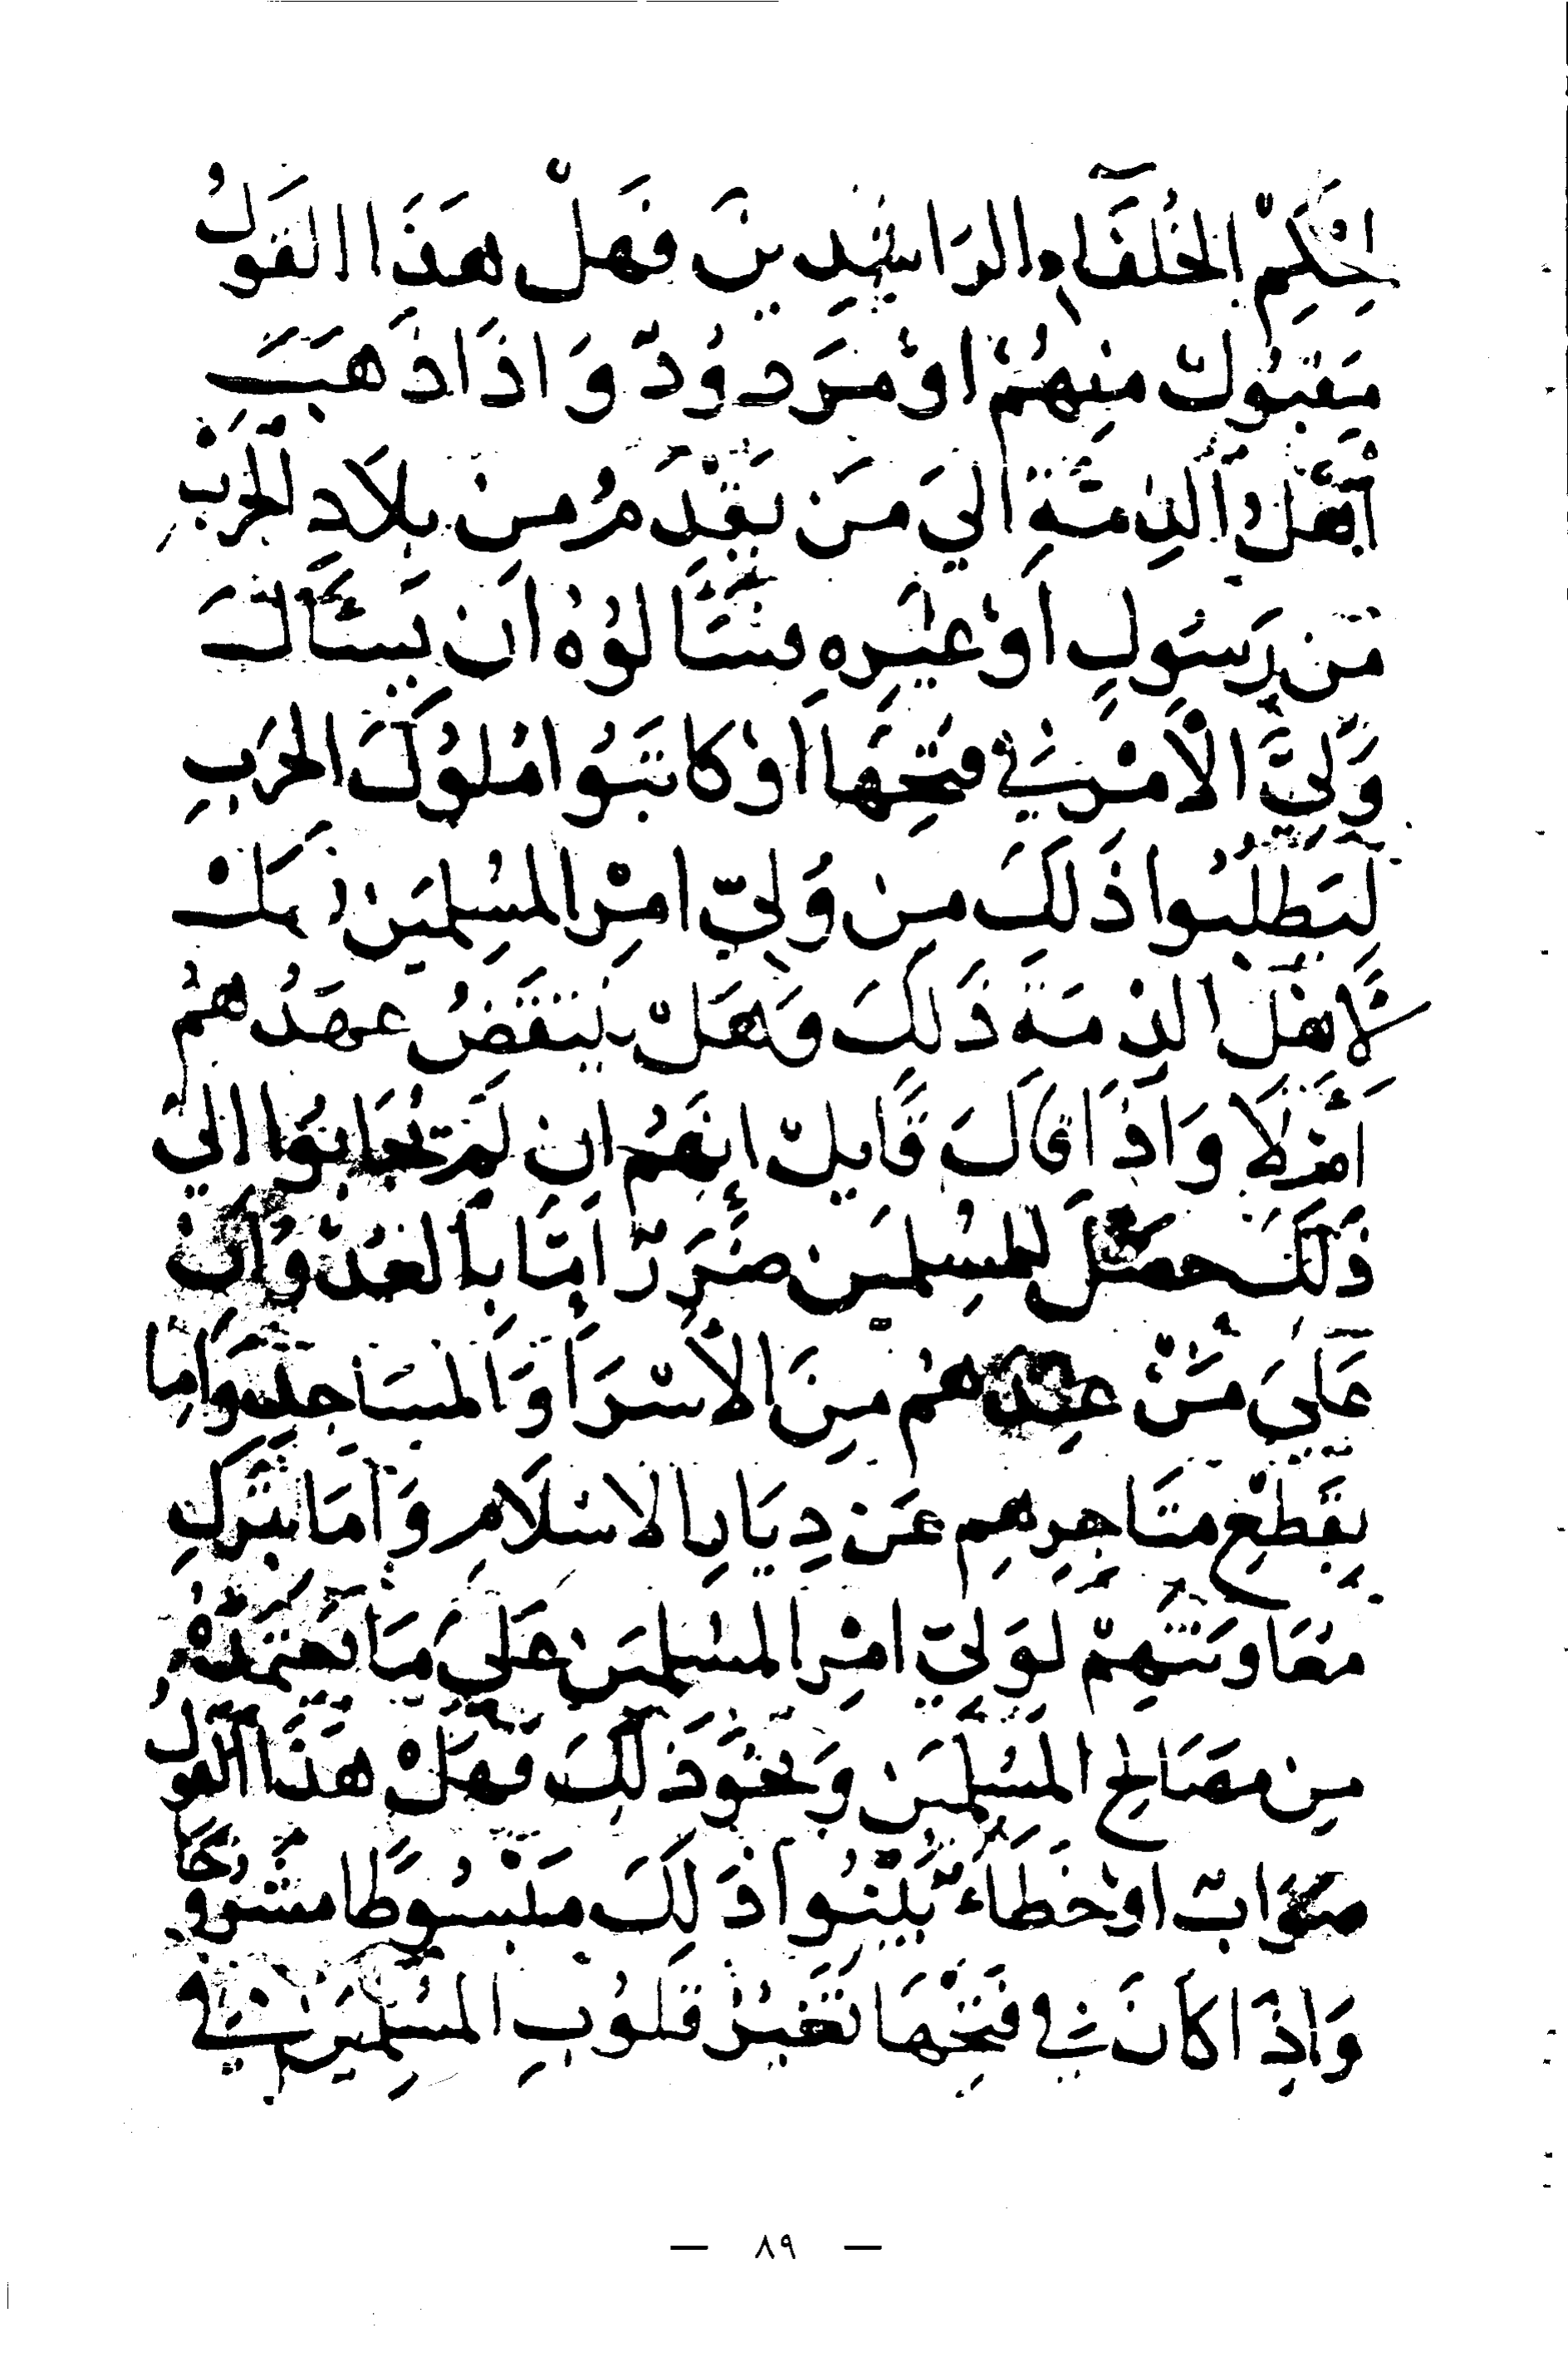 حُكِمْ الخُلَفَآءِ الرَاشِدِينَ فَهَلْ هَذَا القَوْلُ
مَقبُولٌ مِنهُمْ اوْ مَرَدوُدٌ وَاذَا ذَهَبَ
أَهْلُ الذِمَّةِ الىَ مَن يَقْدَمُ مِن بِلاَدِ الحَربِ
مَن رَسُولٍ اَوْ غَيْرِه يسَئَالوُهُ اَن يَسئَالَ
وَلىَّ الأَمْرِ فيِ فَتِحهَا اوْ كاتَبُوا مُلوُكَ الحَربِ
لِيَطلُبُوا ذَلكَ مِن وَلىِّ امْرِ المسُلِمَينَ
لأَهْل الذِمَةَ ذَلكَ وَهَلْ يَنتَقَضُ عَهدُهمُ
اَمْ لَا وَاذَا قَالَ قَايلٌ انهَمُ ان لَم يُجَابوُا الىَ
ذَلكَ حصَلَ للمسُلمَين ضَرَرٌ امَّا باِلعُدْوَانِ
عَلىَ مَنْ عِندَهمُ مِنَ الأسْرَا وَالمسَاجِد وَامِا
بِقَطْعِ مَتَاجِرِهِم عَن دِيَارِ الاسْلَامِ وَاَمَا بتَركِ
مُعَاوَنَتهِمْ لوَلىِّ امْرِ المسُلِمَينَ عَلىَ مَا يَعتَمِدُهُ
مِن مَصَالِح المسُلِمَينَ وَنحَوَ ذَلِكَ فَهَلْ هَذَا القَولُ
صَوَابٌ اوْ خَطَاءٌ بَيِّنُوا ذَلكَ مَبْسُوطًا مَشرُوحًا
وَاذَا كَانَ فيِ فَتِحْهَا تَغَيُرْ قلوُبِ المسُلِمَينَ فيِ
— ٨٩ —